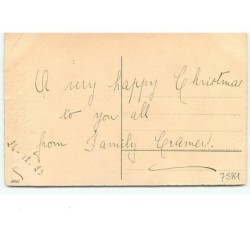 A very happy Christmas
to you all
from Family Cramer.
7581